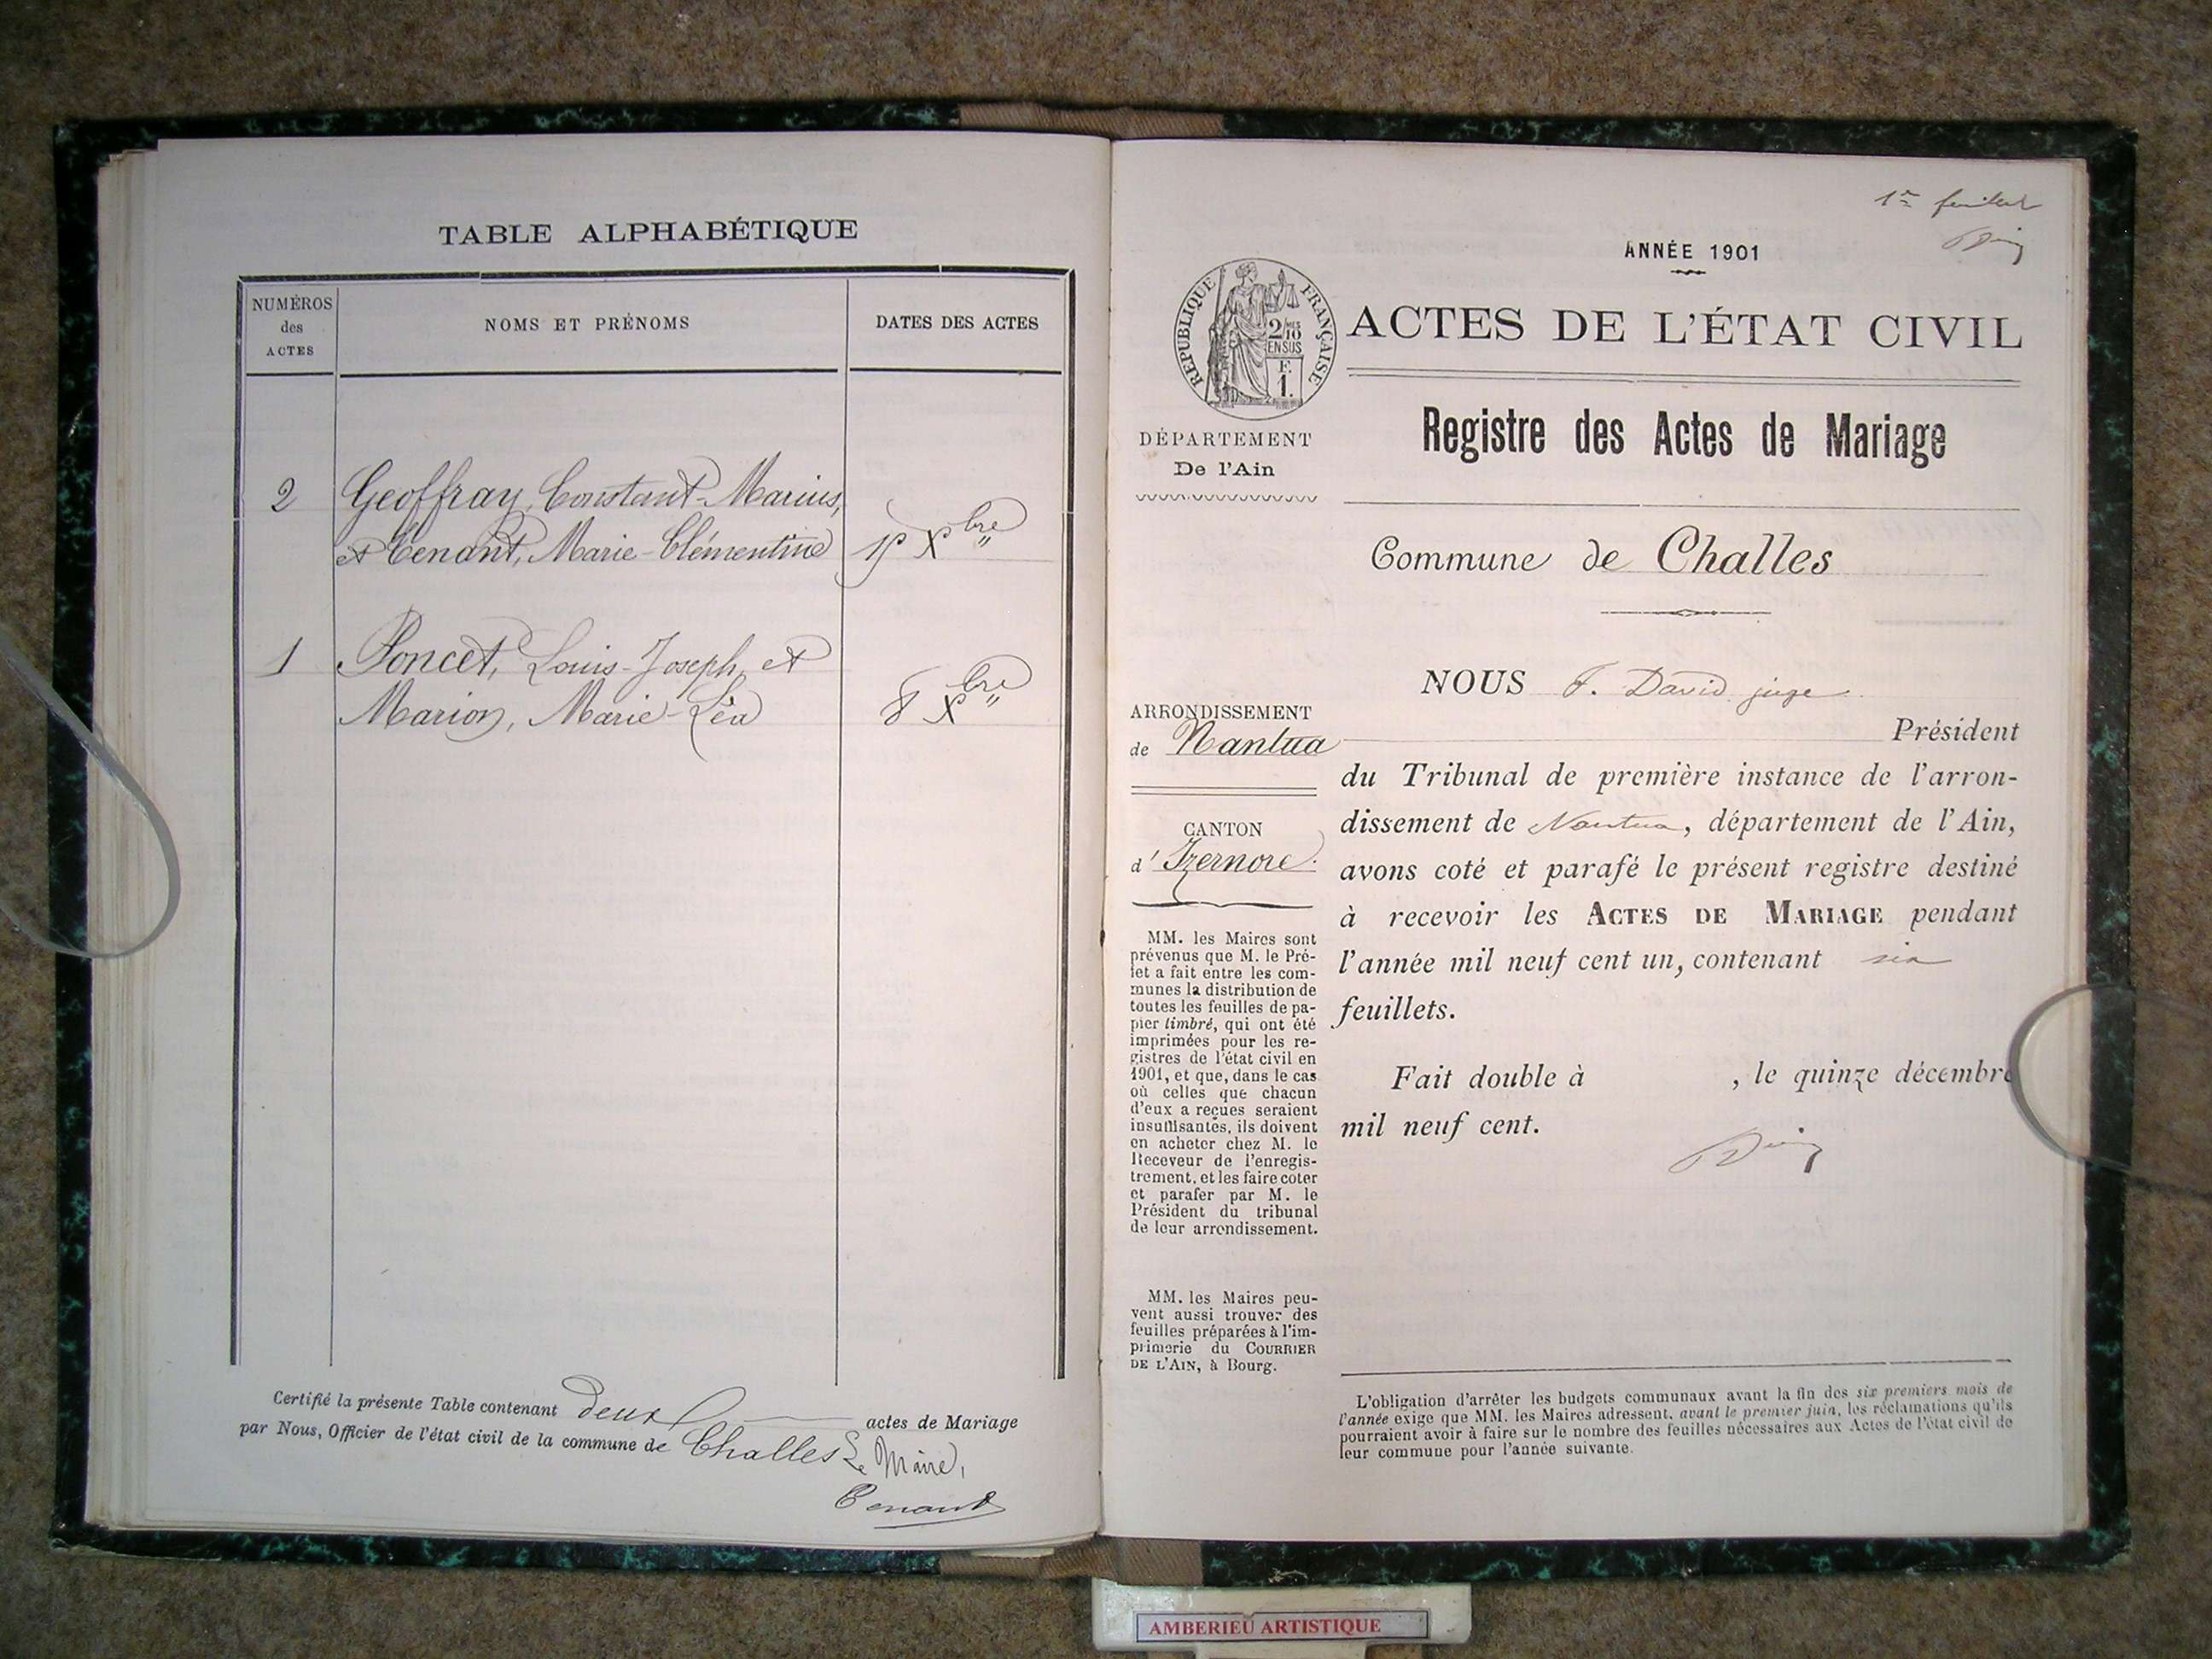 TABLE ALPHABÉTIQUE
NUMÉROS
des
ACTES
NOMS ET PRÉNOMS
DATES DES ACTES
2
Geoffray, Constant-Marius,
et Tenant, Marie-Clémentine
Xbre
1
Poncet, Louis-Joseph, et
Marion, Marie-Léa
8 Xbre
Certifié la présente Table contenant deux actes de Mariage
par Nous, Officier de l'état civil de la commune de Challes
Le Maire,
Tenant
1er feuillet
ANNÉE 1901
RÉPUBLIQUE FRANÇAISE
2/10
EN SUS
F.
1.
ACTES DE L'ÉTAT CIVIL
DÉPARTEMENT
De l'Ain
Registre des Actes de Mariage
Commune de Challes
ARRONDISSEMENT
de Nantua
CANTON
d'Izernore
MM. les Maires sont
prévenus que M. le Pré-
fet a fait entre les com-
munes la distribution de
toutes les feuilles de pa-
pier timbré, qui ont été
imprimées pour les re-
gistres de l'état civil en
1901, et que, dans le cas
où celles que chacun
d'eux a reçues seraient
insuffisantes, ils doivent
en acheter chez M. le
Receveur de l'enregis-
trement, et les faire coter
et parafer par M. le
Président du tribunal
de leur arrondissement.
MM. les Maires peu-
vent aussi trouver des
feuilles préparées à l'im-
primerie du COURRIER
DE L'AIN, à Bourg.
NOUS F. David juge
Président
du Tribunal de première instance de l'arron-
dissement de Nantua, département de l'Ain,
avons coté et parafé le présent registre destiné
à recevoir les ACTES DE MARIAGE pendant
l'année mil neuf cent un, contenant six
feuillets.
Fait double à , le quinze décembre
mil neuf cent.
L'obligation d'arrêter les budgets communaux avant la fin des six premiers mois de
l'année exige que MM. les Maires adressent, avant le premier juin, les réclamations qu'ils
pourraient avoir à faire sur le nombre des feuilles nécessaires aux Actes de l'état civil de
leur commune pour l'année suivante.
AMBERIEU ARTISTIQUE